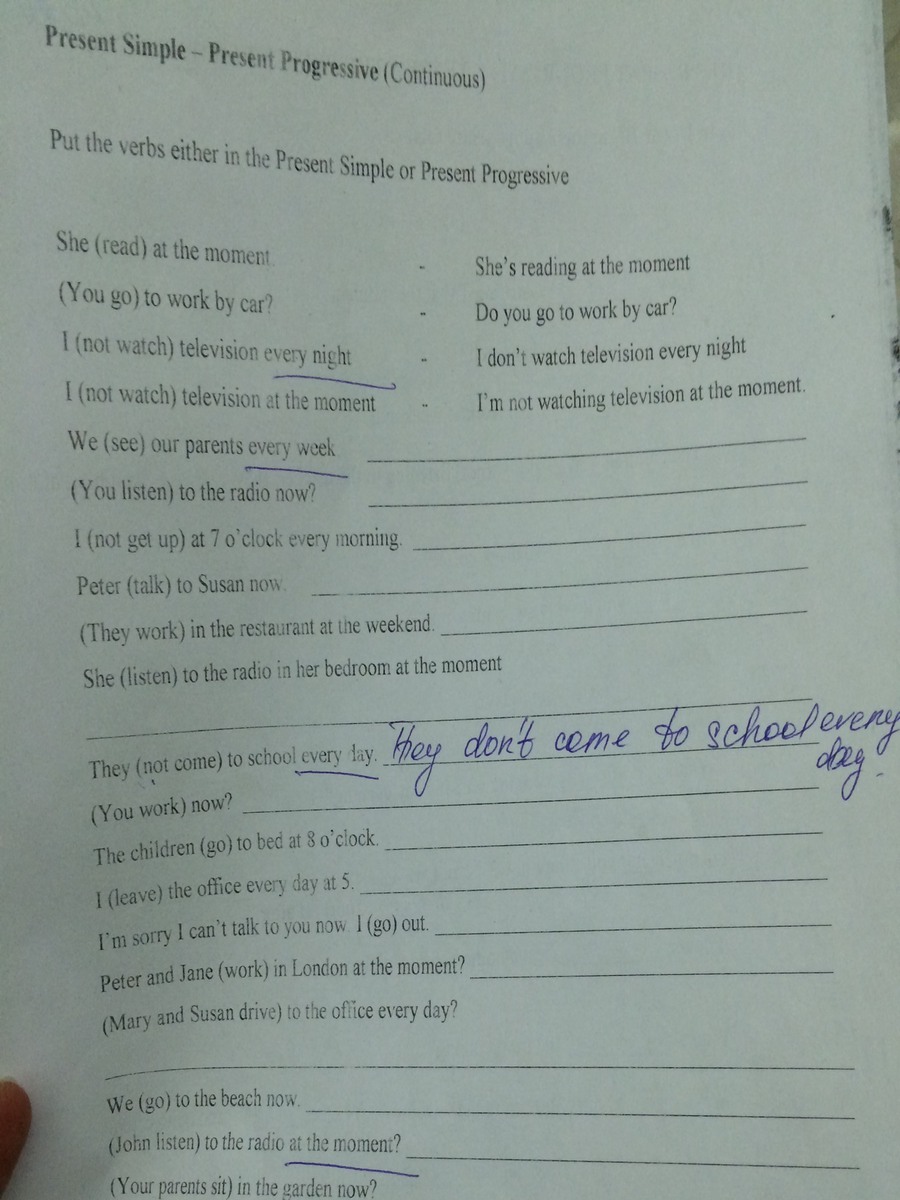 Present Simple – Present Progressive (Continuous)
Put the verbs either in the Present Simple or Present Progressive
She (read) at the moment - She's reading at the moment
(You go) to work by car? - Do you go to work by car?
I (not watch) television every night - I don't watch television every night
I (not watch) television at the moment - I'm not watching television at the moment.
We (see) our parents every week
(You listen) to the radio now?
I (not get up) at 7 o'clock every morning.
Peter (talk) to Susan now.
(They work) in the restaurant at the weekend.
She (listen) to the radio in her bedroom at the moment
They (not come) to school every day. They don't come to school every
day.
(You work) now?
The children (go) to bed at 8 o'clock.
I (leave) the office every day at 5.
I'm sorry I can't talk to you now I (go) out.
Peter and Jane (work) in London at the moment?
(Mary and Susan drive) to the office every day?
We (go) to the beach now.
(John listen) to the radio at the moment?
(Your parents sit) in the garden now?